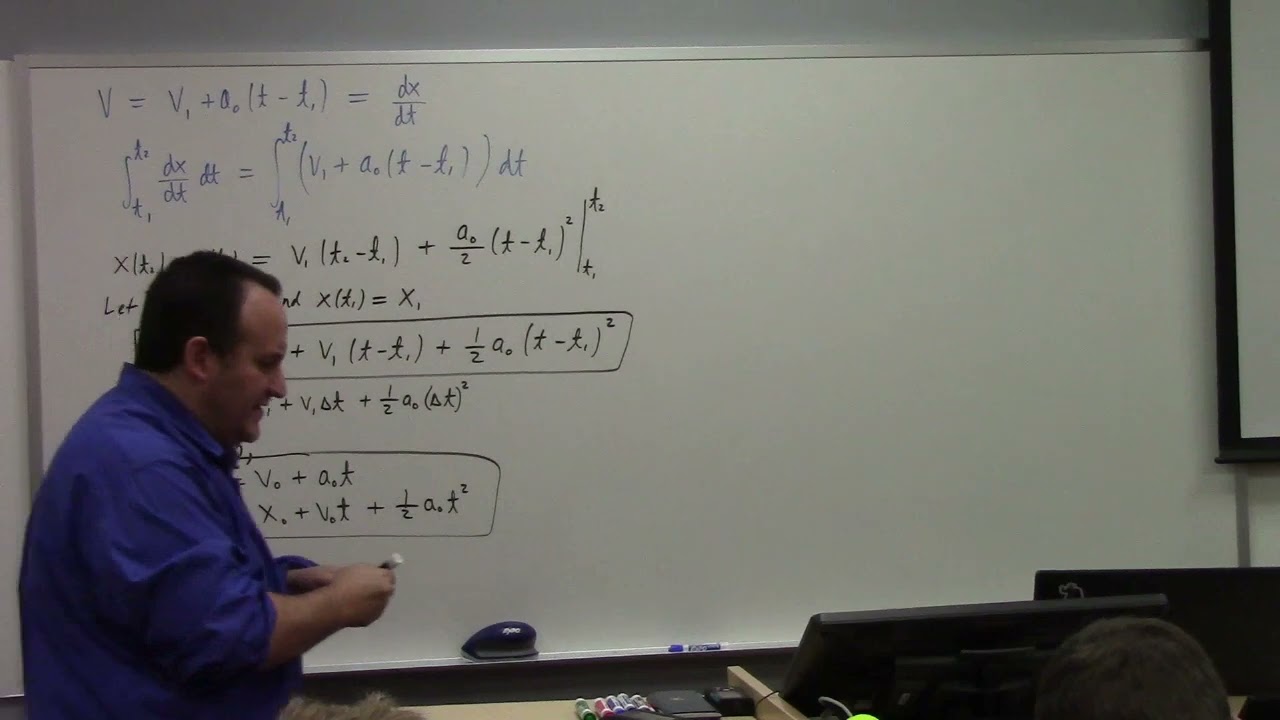 V = V₁ + a₀(t - t₁) = dx/dt
∫_{t₁}^{t₂} dx/dt dt = ∫_{t₁}^{t₂} (V₁ + a₀(t - t₁)) dt
X(t₂) = V₁(t₂ - t₁) + a₀/2 (t - t₁)² |_{t₁}^{t₂}
Let X(t₁) = X₁
+ V₁(t - t₁) + 1/2 a₀(t - t₁)²
+ V₁Δt + 1/2 a₀(Δt)²
= V₀ + a₀t
X₀ + V₀t + 1/2 a₀t²
expo